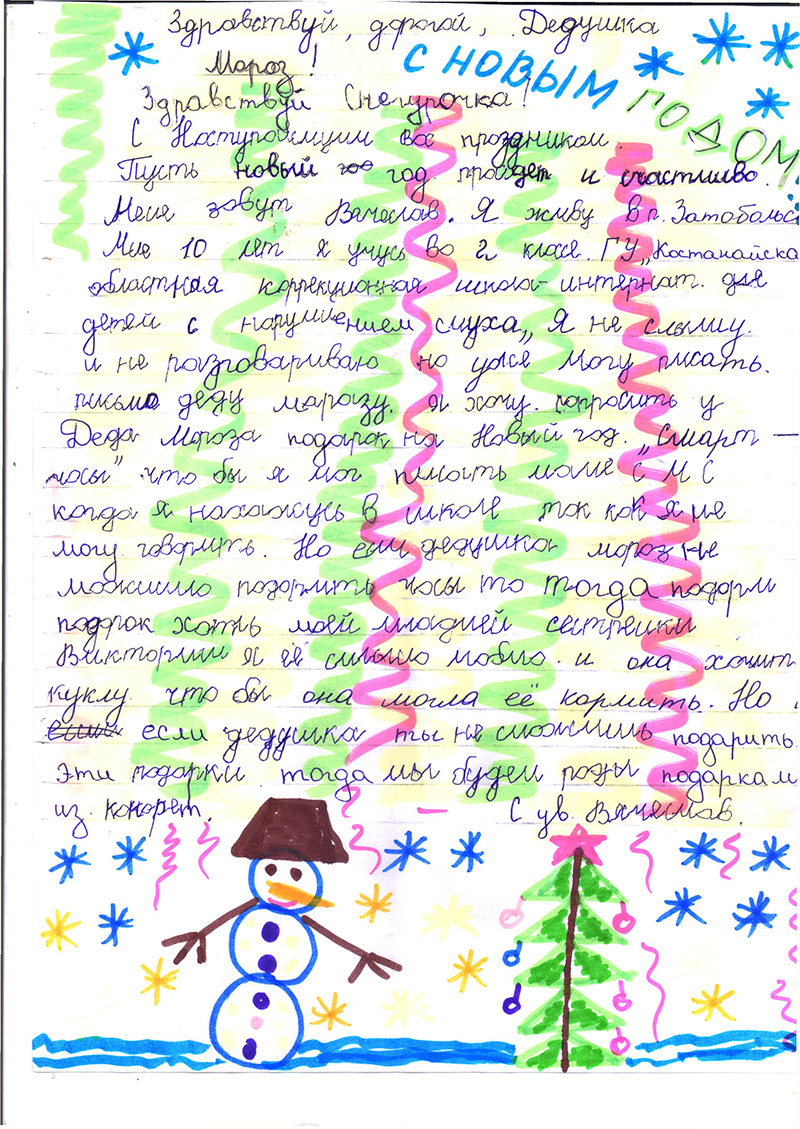 Здравствуй, дорогой, Дедушка
Мороз!
С НОВЫМ ГОДОМ
Здравствуй Снегурочка!
С Наступоющим вас праздником.
Пусть новый год пройдет и счастливо.
Меня зовут Вячеслав. Я живу в п. Затобольс
Мне 10 лет я учусь во 2 класе. ГУ „Костанайска
областная коррекционная школа-интернат. для
детей с нарушением слуха„ Я не слышу.
и не разговариваю но уже могу писать.
письмо деду марозу. я хочу. попросить у
Деда Мороза подарок на Новый год. „Смарт –
часы" что бы я мог писать маме С М С
когда я нахажусь в школе так как я не
могу говорить. Но если дедушка мороз не
можишь подарить часы то тогда подари
подарок хоть моей младшей сестрёнки
Виктории я её сильно люблю. и она хочит
куклу что бы она могла её кормить. Но
если дедушка ты не сможишь подарить
эти подарки тогда мы будем рады подаркам
из конфет. – С ув. Вячеслав.